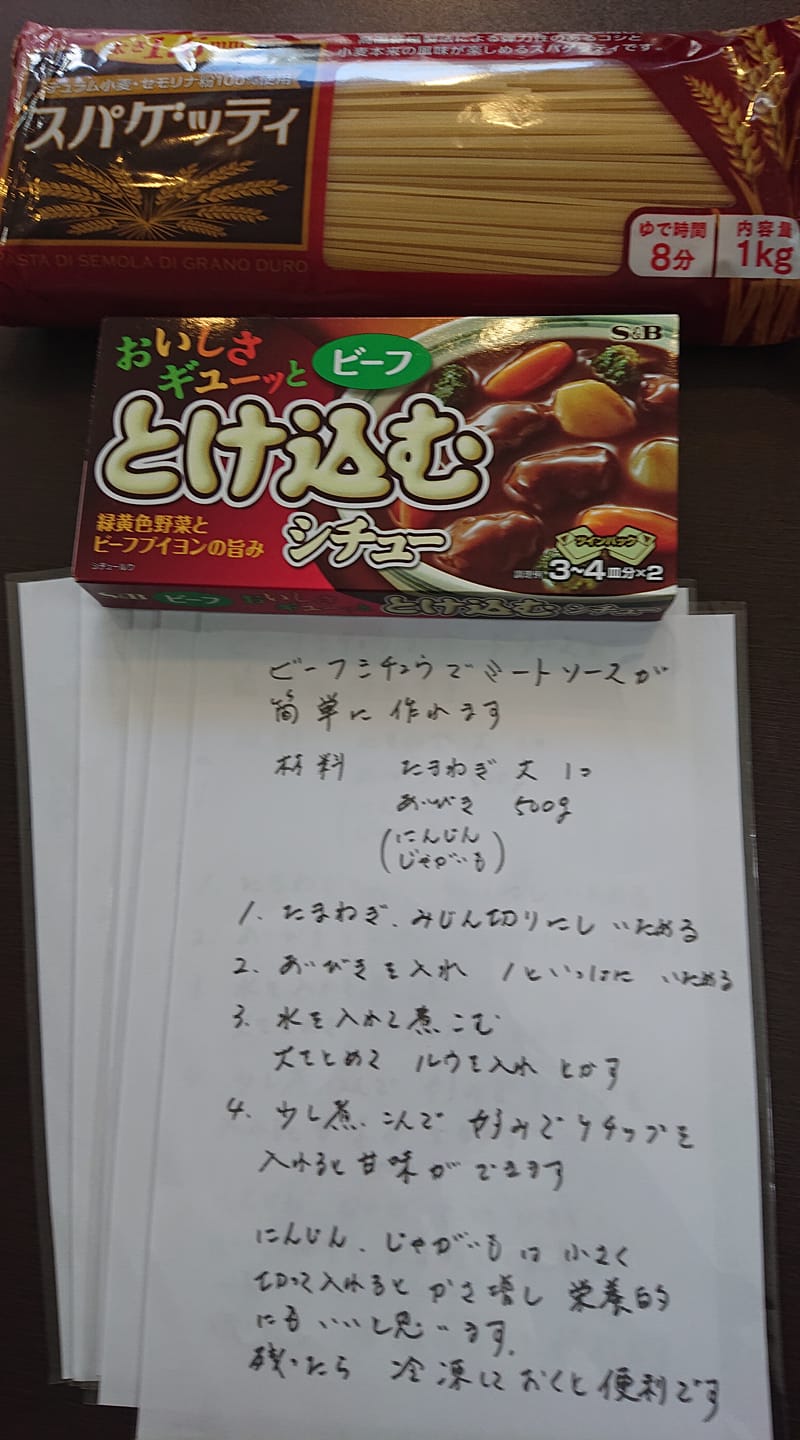 小麦本来の風味が楽しめるスパゲッティです。
デュラム小麦・セモリナ粉100%使用
スパゲッティ
PASTA DI SEMOLA DI GRANO DURO
ゆで時間
8分
内容量
1kg
S&B
おいしさ
ギューッと
ビーフ
とけ込む
シチュー
緑黄色野菜と
ビーフブイヨンの旨み
シチュールウ
ツインパック
3~4皿分×2
S&B ビーフ おいしさギューッと とけ込むシチュー
ビーフシチュウでミートソースが
簡単に作れます
材料 たまねぎ 大 1つ
あいびき 500g
(にんじん
じゃがいも)
1. たまねぎ、みじん切りにし いためる
2. あいびきを入れ 1といっしょに いためる
3. 水を入れて煮こむ
火をとめて ルウを入れ とかす
4. 少し煮こんで 好みでケチャップを
入れると甘味がでます
にんじん、じゃがいもは小さく
切って入れると かさ増し 栄養的
にもいいと思います。
残ったら 冷凍しておくと便利です